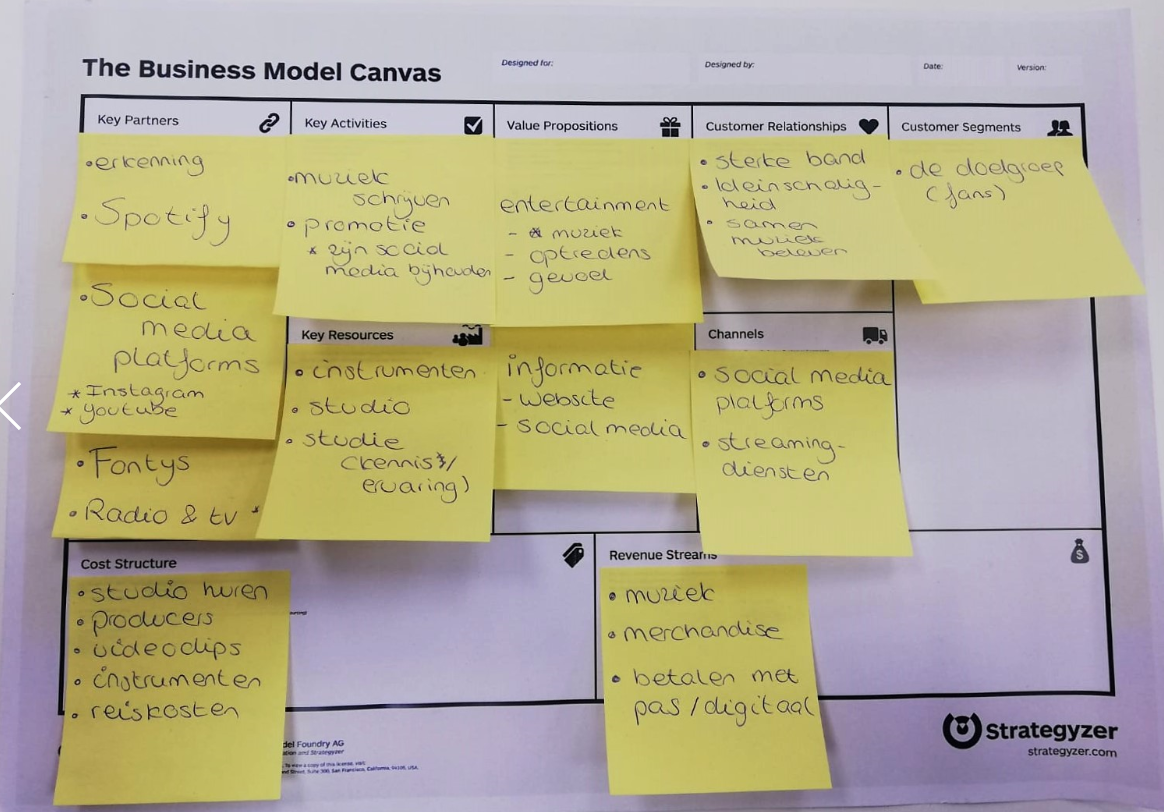 The Business Model Canvas
Designed for:
Designed by:
Date:
Version:
Key Partners
• erkenning
• Spotify
• Social
media
platforms
* Instagram
* youtube
• Fontys
• Radio & tv *
Key Activities
• muziek
schrijven
• promotie
* zijn social
media bijhouden
Key Resources
• instrumenten
• studio
• studie
(kennis/
ervaring)
Value Propositions
entertainment
- muziek
- optredens
- gevoel
informatie
- website
- social media
Customer Relationships
• sterke band
• kleinschalig-
heid
• samen
muziek
beleven
Channels
• social media
platforms
• streaming-
diensten
Customer Segments
• de doelgroep
(fans)
Cost Structure
• studio huren
• producers
• videoclips
• instrumenten
• reiskosten
Revenue Streams
• muziek
• merchandise
• betalen met
pas/digitaal
del Foundry AG
ation and Strategyzer
To view a copy of this license, visit:
Street, Suite 300, San Francisco, California, 94105, USA.
Strategyzer
strategyzer.com